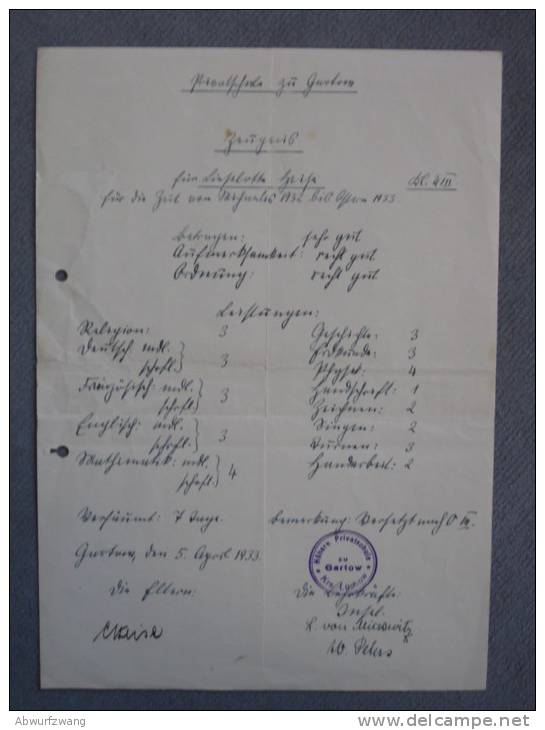 Privatschule zu Gartow
Zeugnis
für Lieselotte
für die Zeit von Michaelis 1932 bis Ostern 1933.
Betragen: sehr gut
Aufmerksamkeit: recht gut
Ordnung: recht gut
Leistungen:
Religion: 3
Deutsch mdl. schrftl. } 3
Französisch: mdl. schrftl. } 3
Englisch: mdl. schrftl. } 3
Mathematik: mdl. schrftl. } 4
Geschichte: 3
Erdkunde: 3
Physik: 4
Handschrift: 1
Zeichnen: 2
Singen: 2
Turnen: 3
Handarbeit: 2
Versäumt: 7 Tage.
Bemerkung: Versetzt nach O III.
Gartow, den 5. April 1933.
Höhere Privatschule
zu
Gartow
Die Eltern:
Die Lehrkräfte
Abwurfzwang
delcampe.net